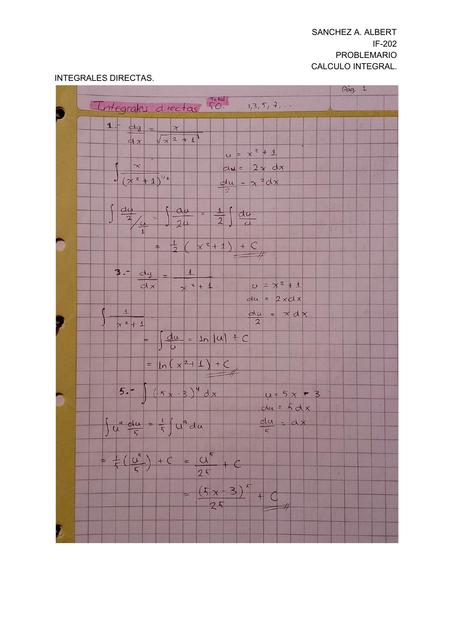 SANCHEZ A. ALBERT
IF-202
PROBLEMARIO
CALCULO INTEGRAL.
INTEGRALES DIRECTAS.
Pág. 1
Integrales directas 50. 1,3,5,7...
1.- dy/dx = x/√(x²+1)
∫ x/(x²+1)^½ u = x²+1
du = 2x dx
du/2 = x²dx
∫ du/2 / u/1 = ∫ du/2u = 1/2 ∫ du/u
= 1/2 (x²+1) + C
3.- dy/dx = 1/(x²+1) u = x²+1
du = 2xdx
∫ 1/(x²+1) du/2 = xdx
= ∫ du/u = ln|u| + C
= ln(x²+1) + C
5.- ∫(5x-3)⁴ dx u = 5x - 3
du = 5dx
∫u⁴ du/5 = 1/5 ∫u⁴ du du/5 = dx
= 1/5 (u⁵/5) + C = u⁵/25 + C
= (5x-3)⁵/25 + C